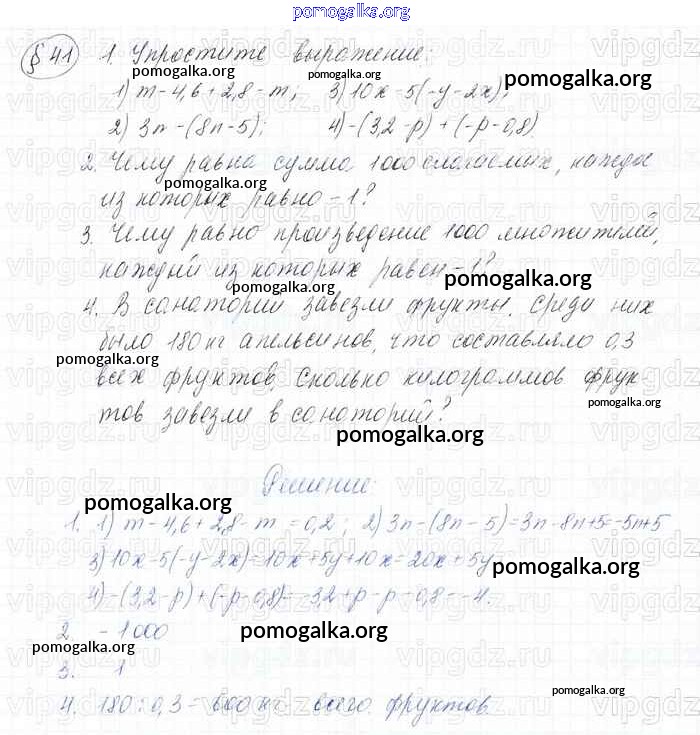 pomogalka.org
§ 41 1. Упростите выражение:
pomogalka.org pomogalka.org
1) m-4,6+2,8-m; 3) 10x-5(-y-2x);
pomogalka.org
2) 3n-(8n-5); 4) -(3,2-p)+(-p-0,8).
2. Чему равна сумма 1000 слагаемых, каждое
pomogalka.org
из которых равно -1?
3. Чему равно произведение 1000 множителей,
каждый из которых равен -1?
pomogalka.org pomogalka.org
4. В санаторий завезли фрукты. Среди них
было 180 кг апельсинов, что составляло 0,3
pomogalka.org
всех фруктов. Сколько килограммов фрук
pomogalka.org
тов завезли в санаторий?
pomogalka.org
Решение:
pomogalka.org
1. 1) m-4,6+2,8-m=0,2; 2) 3n-(8n-5)=3n-8n+5=-5n+5
3) 10x-5(-y-2x)=10x+5y+10x=20x+5y
pomogalka.org
4) -(3,2-p)+(-p-0,8)=-3,2+p-p-0,8=-4.
2. -1000
pomogalka.org pomogalka.org
3. 1
pomogalka.org
4. 180:0,3=600 кг - всего фруктов.